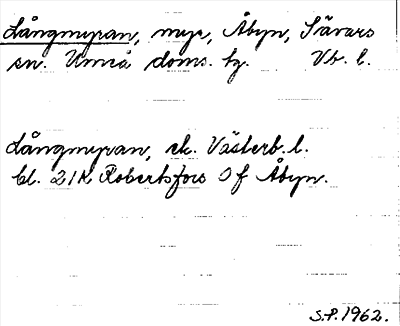 Långmyran, myr, Åbyn, Sävars
sn. Umeå doms. hg. Vb. l.
Långmyran, ek. Västerb. l.
bl. 21K Robertsfors Of Åbyn.
S.P. 1962.